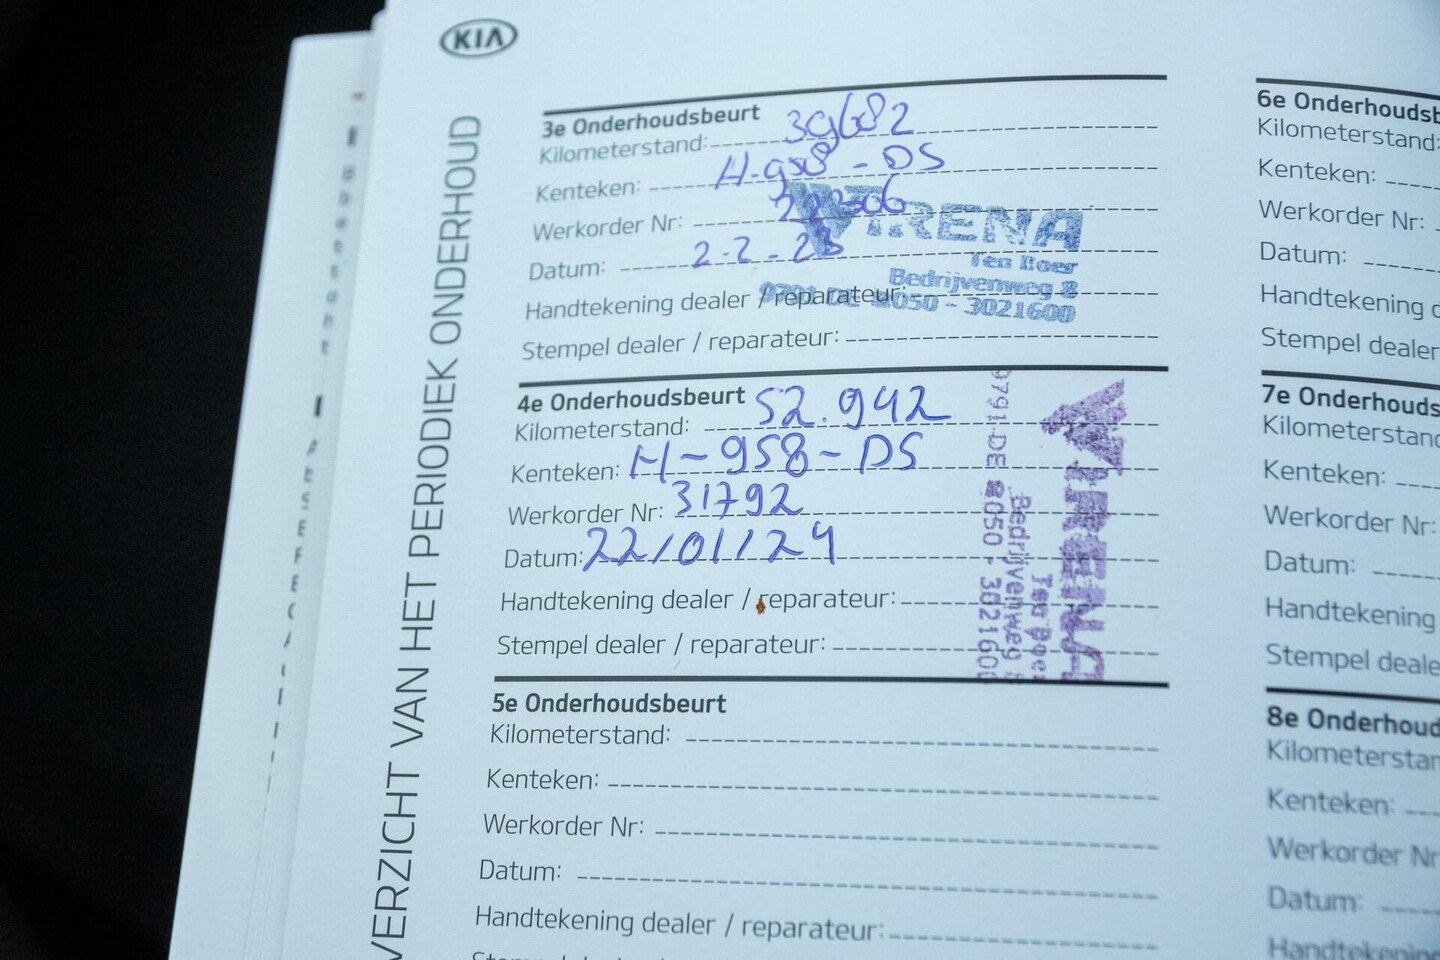 KIA
VERZICHT VAN HET PERIODIEK ONDERHOUD
3e Onderhoudsbeurt
Kilometerstand: 39682
Kenteken: H-958-DS
Werkorder Nr:
Datum: 2-2-23
Handtekening dealer / reparateur:
Stempel dealer / reparateur:
WIRENA
Ten Boer
Bedrijvenweg 8
9791 DE 050 - 3021600
4e Onderhoudsbeurt
Kilometerstand: 52.942
Kenteken: H-958-DS
Werkorder Nr: 31792
Datum: 22/01/24
Handtekening dealer / reparateur:
Stempel dealer / reparateur:
WIRENA
Ten Boer
Bedrijvenweg 8
9791 DE 050 - 3021600
5e Onderhoudsbeurt
Kilometerstand:
Kenteken:
Werkorder Nr:
Datum:
Handtekening dealer / reparateur:
6e Onderhoudsb
Kilometerstand:
Kenteken:
Werkorder Nr:
Datum:
Handtekening d
Stempel dealer
7e Onderhouds
Kilometerstand
Kenteken:
Werkorder Nr:
Datum:
Handtekening
Stempel deale
8e Onderhoud
Kilometerstan
Kenteken:
Werkorder Nr
Datum:
Handtekening